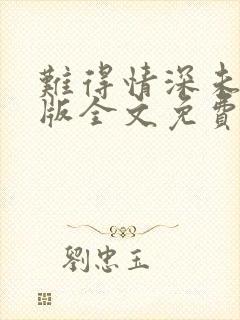 難得情深未
版全文免費
劉忠玉